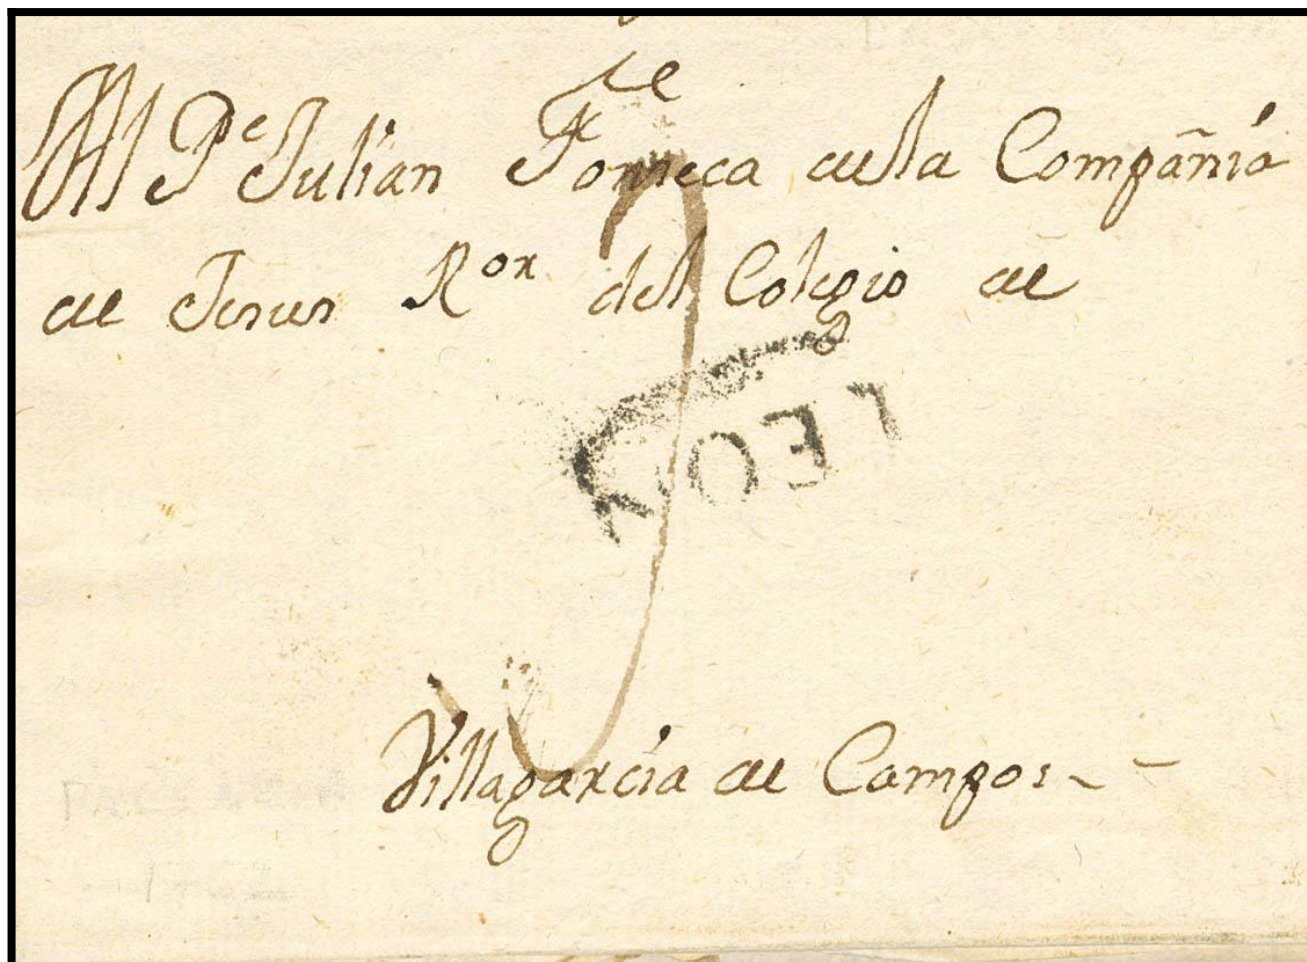 Al P.e Julian Fonseca de la Compañia
de Jesus R.or del Colegio de
LEON
Villagarcia de Campos